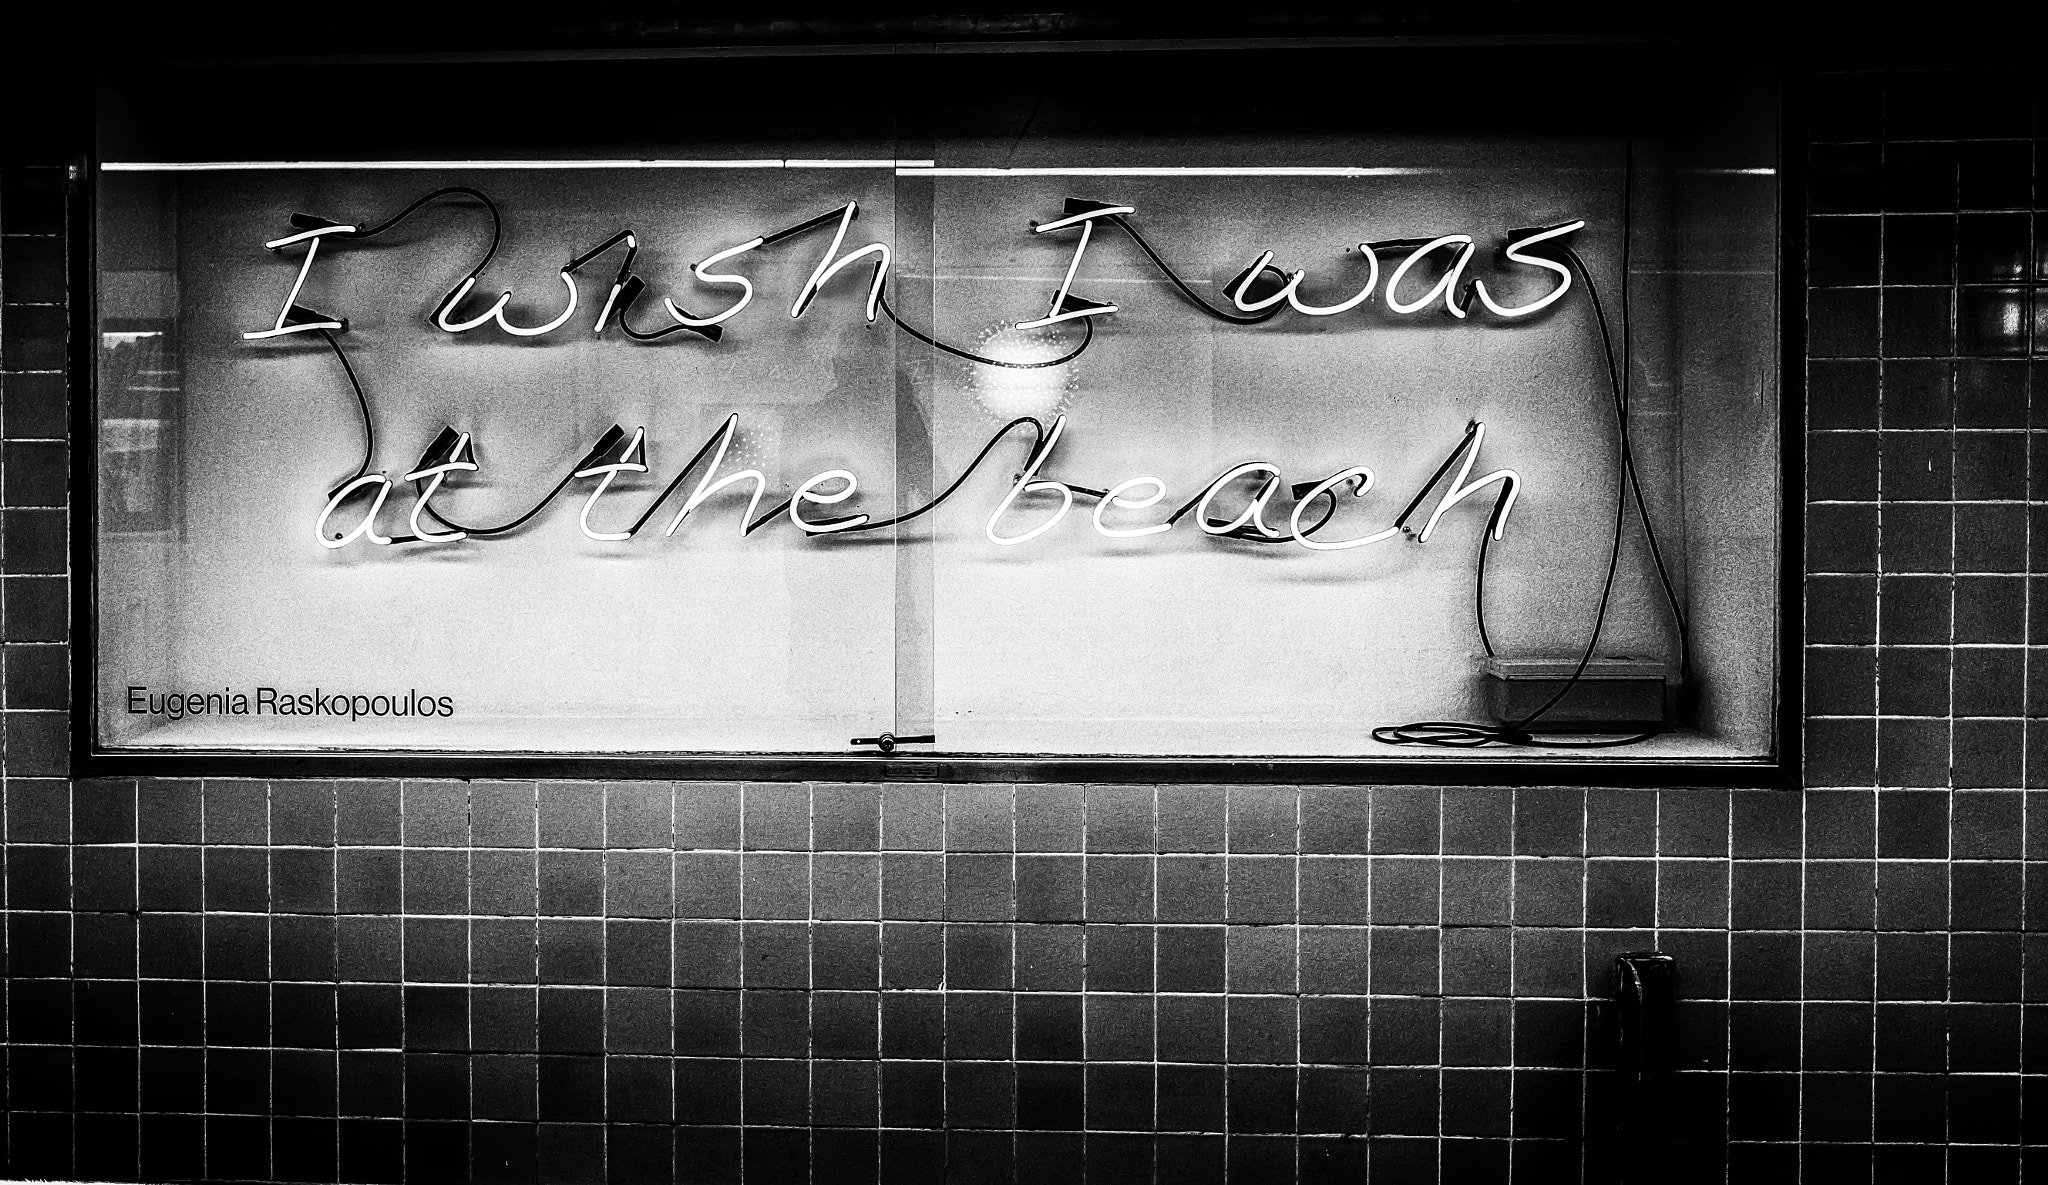 I wish I was
at the beach
Eugenia Raskopoulos